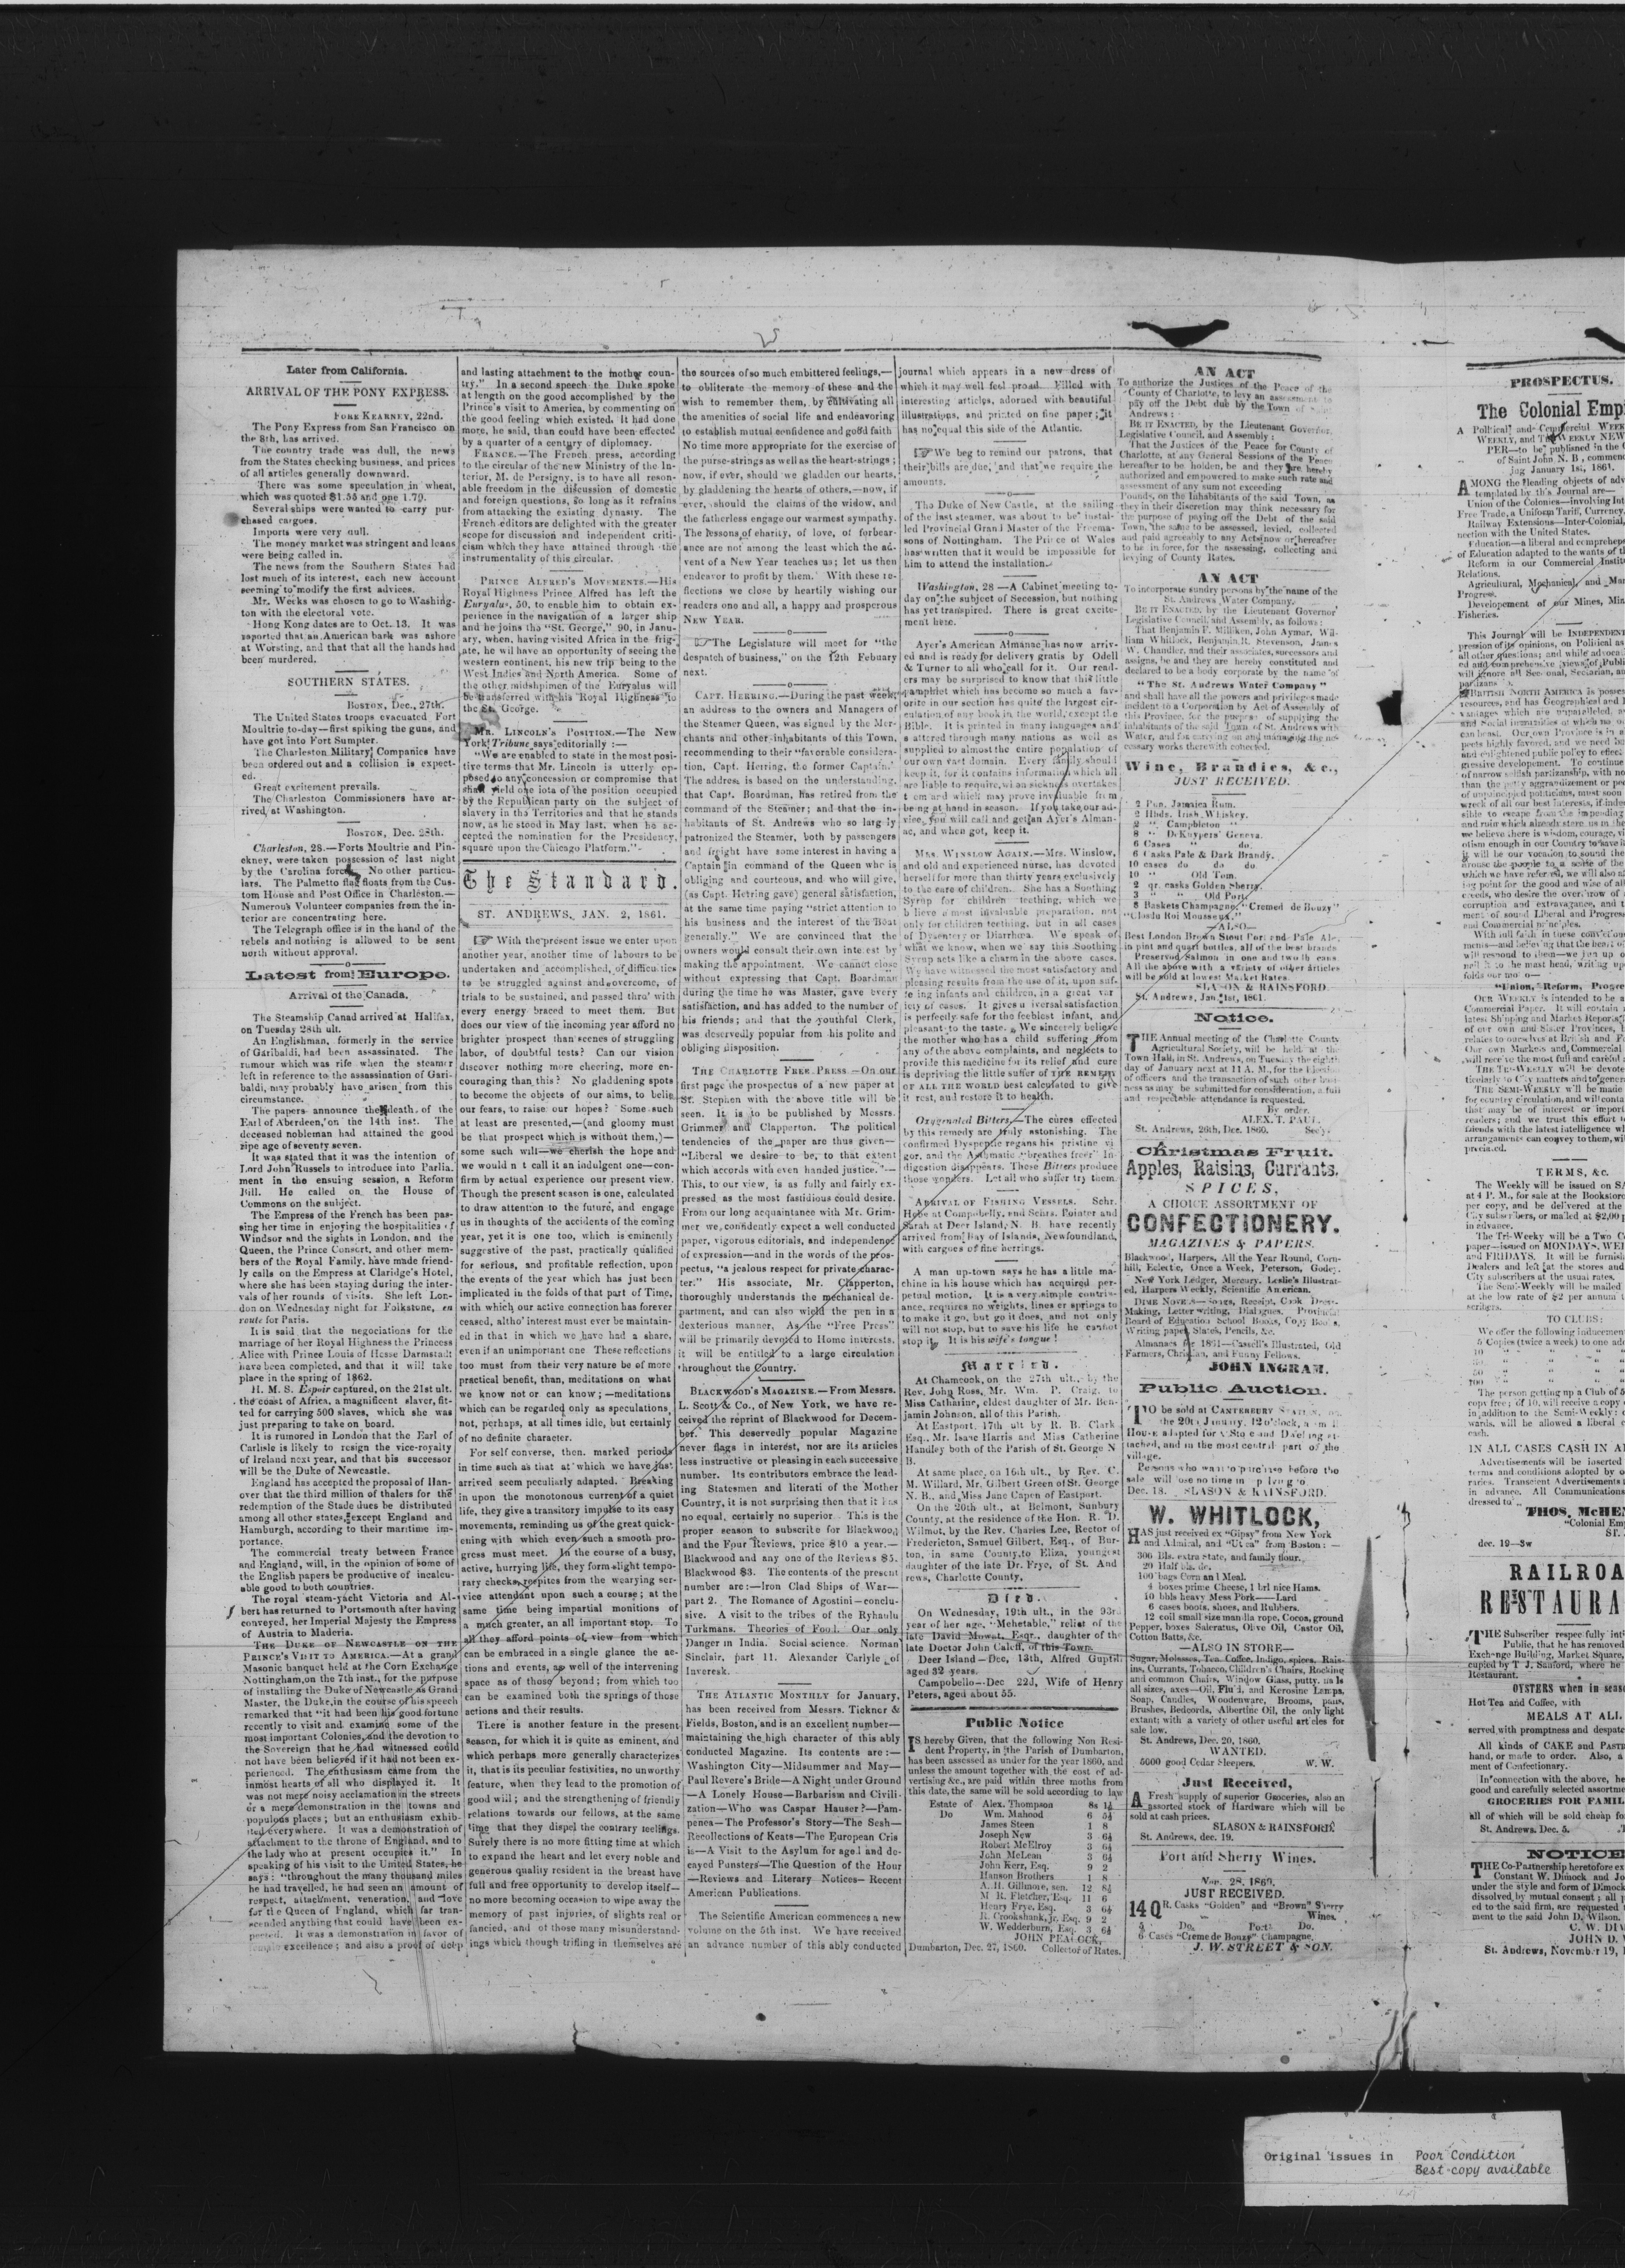 Later from California.
ARRIVAL OF THE PONY EXPRESS.
FORK KEARNEY, 22nd.
The Pony Express from San Francisco on
the 8th, has arrived.
The country trade was dull, the news
from the States checking business, and prices
of all articles generally downward.
There was some speculation in wheat,
which was quoted $1.55 and one 1.79.
Several ships were wanted to carry pur-
chased cargoes.
Imports were very dull.
The money market was stringent and loans
were being called in.
The news from the Southern States had
lost much of its interest, each new account
seeming to modify the first advices.
Mr. Weeks was chosen to go to Washing-
ton with the electoral vote.
Hong Kong dates are to Oct. 13. It was
reported that an American bark was ashore
at Worsting, and that that all the hands had
been murdered.
SOUTHERN STATES.
BOSTON, Dec., 27th.
The United States troops evacuated Fort
Moultrie to-day—first spiking the guns, and
have got into Fort Sumpter.
The Charleston Military Companies have
been ordered out and a collision is expect-
ed.
Great excitement prevails.
The Charleston Commissioners have ar-
rived at Washington.
BOSTON, Dec. 28th.
Charleston, 28.—Forts Moultrie and Pin-
ckney, were taken possession of last night
by the Carolina force. No other particu-
lars. The Palmetto flag floats from the Cus-
tom House and Post Office in Charleston.—
Numerous Volunteer companies from the in-
terior are concentrating here.
The Telegraph office is in the hand of the
rebels and nothing is allowed to be sent
north without approval.
Latest from Europe.
Arrival of the Canada.
The Steamship Canad arrived at Halifax,
on Tuesday 28th ult.
An Englishman, formerly in the service
of Garibaldi, had been assassinated. The
rumour which was rife when the steamer
left in reference to the assassination of Gari-
baldi, may probably have arisen from this
circumstance.
The papers announce the death of the
Earl of Aberdeen, on the 14th inst. The
deceased nobleman had attained the good
ripe age of seventy seven.
It was stated that it was the intention of
Lord John Russels to introduce into Parlia-
ment in the ensuing session, a Reform
Bill. He called on the House of
Commons on the subject.
The Empress of the French has been pas-
sing her time in enjoying the hospitalities of
Windsor and the sights in London, and the
Queen, the Prince Consort, and other mem-
bers of the Royal Family, have made friend-
ly calls on the Empress at Claridge's Hotel,
where she has been staying during the inter-
vals of her rounds of visits. She left Lon-
don on Wednesday night for Folkstone, en
route for Paris.
It is said that the negociations for the
marriage of her Royal Highness the Princess
Alice with Prince Louis of Hesse Darmstadt
have been completed, and that it will take
place in the spring of 1862.
H. M. S. Espoir captured, on the 21st ult.
the coast of Africa, a magnificent slaver, fit-
ted for carrying 500 slaves, which she was
just preparing to take on board.
It is rumored in London that the Earl of
Carlisle is likely to resign the vice-royalty
of Ireland next year, and that his successor
will be the Duke of Newcastle.
England has accepted the proposal of Han-
over that the third million of thalers for the
redemption of the Stade dues be distributed
among all other states, except England and
Hamburgh, according to their maritime im-
portance.
The commercial treaty between France
and England, will, in the opinion of some of
the English papers be productive of incalcu-
able good to both countries.
The royal steam-yacht Victoria and Al-
bert has returned to Portsmouth after having
conveyed, her Imperial Majesty the Empress
of Austria to Maderia.
THE DUKE OF NEWCASTLE ON THE
PRINCE'S VISIT TO AMERICA.—At a grand
Masonic banquet held at the Corn Exchange
Nottingham, on the 7th inst., for the purpose
of installing the Duke of Newcastle as Grand
Master, the Duke, in the course of his speech
remarked that "it had been his good fortune
recently to visit and examine some of the
most important Colonies, and the devotion to
the Sovereign that he had witnessed could
not have been believed if it had not been ex-
perienced. The enthusiasm came from the
inmost hearts of all who displayed it. It
was not mere noisy acclamation in the streets
or a mere demonstration in the towns and
populous places; but an enthusiasm exhib-
ited everywhere. It was a demonstration of
attachment to the throne of England, and to
the lady who at present occupies it." In
speaking of his visit to the United States, he
says: "throughout the many thousand miles
he had travelled, he had seen an amount of
respect, attachment, veneration, and love
for the Queen of England, which far tran-
scended anything that could have been ex-
pected. It was a demonstration in favor of
excellence; and also a proof of deep
and lasting attachment to the mother coun-
try." In a second speech the Duke spoke
at length on the good accomplished by the
Prince's visit to America, by commenting on
the good feeling which existed. It had done
more, he said, than could have been effected
by a quarter of a century of diplomacy.
FRANCE.—The French press, according
to the circular of the new Ministry of the In-
terior, M. de Persigny, is to have all reson-
able freedom in the discussion of domestic
and foreign questions, so long as it refrains
from attacking the existing dynasty. The
French editors are delighted with the greater
scope for discussion and independent criti-
cism which they have attained through the
instrumentality of this circular.
PRINCE ALFRED'S MOVEMENTS.—His
Royal Highness Prince Alfred has left the
Euryalus, 50, to enable him to obtain ex-
perience in the navigation of a larger ship
and he joins the "St. George," 90, in Janu-
ary, when, having visited Africa in the frig-
ate, he wil have an opportunity of seeing the
western continent, his new trip being to the
West Indies and North America. Some of
the other midshpimen of the Euryalus will
be transferred with his Royal Highness to
the St. George.
MR. LINCOLN'S POSITION.—The New
York Tribune says editorially:—
"We are enabled to state in the most posi-
tive terms that Mr. Lincoln is utterly op-
posed to any concession or compromise that
shall yield one iota of the position occupied
by the Republican party on the subject of
slavery in the Territories and that he stands
now, as he stood in May last, when he ac-
cepted the nomination for the Presidency,
square upon the Chicago Platform."
The Standard.
ST. ANDREWS, JAN. 2, 1861.
With the present issue we enter upon
another year, another time of labours to be
undertaken and accomplished, of difficulties
to be struggled against and overcome, of
trials to be sustained, and passed thro' with
every energy braced to meet them. But
does our view of the incoming year afford no
brighter prospect than scenes of struggling
labor, of doubtful tests? Can our vision
discover nothing more cheering, more en-
couraging than this? No gladdening spots
to become the objects of our aims, to belie
our fears, to raise our hopes? Some such
at least are presented,—(and gloomy must
be that prospect which is without them,)—
some such will—we cherish the hope and
we would n t call it an indulgent one—con-
firm by actual experience our present view.
Though the present season is one, calculated
to draw attention to the future, and engage
us in thoughts of the accidents of the coming
year, yet it is one too, which is eminently
suggestive of the past, practically qualified
for serious, and profitable reflection, upon
the events of the year which has just been
implicated in the folds of that part of Time,
with which our active connection has forever
ceased, altho' interest must ever be maintain-
ed in that in which we have had a share,
even if an unimportant one These reflections
too must from their very nature be of more
practical benefit, than, meditations on what
we know not or can know;—meditations
which can be regarded only as speculations
not, perhaps, at all times idle, but certainly
of no definite character.
For self converse, then, marked periods
in time such as that at which we have just
arrived seem peculiarly adapted. Breaking
in upon the monotonous current of a quiet
life, they give a transitory impulse to its easy
movements, reminding us of the great quick-
ening with which even such a smooth pro-
gress must meet. In the course of a busy,
active, hurrying life, they form slight tempo-
rary checks, respites from the wearying ser-
vice attendant upon such a course; at the
same time being impartial monitions of
a much greater, an all important stop. To
all they afford points of view from which
can be embraced in a single glance the ac-
tions and events, as well of the intervening
space as of those beyond; from which too
can be examined both the springs of those
actions and their results.
There is another feature in the present
season, for which it is quite as eminent, and
which perhaps more generally characterizes
it, that is its peculiar festivities, no unworthy
feature, when they lead to the promotion of
good will; and the strengthening of friendly
relations towards our fellows, at the same
time that they dispel the contrary feelings.
Surely there is no more fitting time at which
to expand the heart and let every noble and
generous quality resident in the breast have
full and free opportunity to develop itself—
no more becoming occasion to wipe away the
memory of past injuries, of slights real or
fancied, and of those many misunderstand-
ings which though trifling in themselves are
the sources of so much embittered feelings,—
to obliterate the memory of these and the
wish to remember them, by cultivating all
the amenities of social life and endeavoring
to establish mutual confidence and good faith
No time more appropriate for the exercise of
the purse-strings as well as the heart-strings;
now, if ever, should we gladden our hearts,
by gladdening the hearts of others,—now, if
ever, should the claims of the widow, and
the fatherless engage our warmest sympathy.
The lessons of charity, of love, of forbear-
ance are not among the least which the ad-
vent of a New Year teaches us; let us then
endeavor to profit by them. With these re-
flections we close by heartily wishing our
readers one and all, a happy and prosperous
NEW YEAR.
The Legislature will meet for "the
despatch of business," on the 12th Febuary
next.
CAPT. HERRING.—During the past week,
an address to the owners and Managers of
the Steamer Queen, was signed by the Mer-
chants and other inhabitants of this Town,
recommending to their "favorable considera-
tion, Capt. Herring, the former Captain."
The address is based on the understanding,
that Capt. Boardman, has retired from the
command of the Steamer; and that the in-
habitants of St. Andrews who so larg ly
patronized the Steamer, both by passengers
and freight have some interest in having a
Captain in command of the Queen who is
obliging and courteous, and who will give,
(as Capt. Herring gave) general satisfaction,
at the same time paying "strict attention to
his business and the interest of the Boat
generally." We are convinced that the
owners would consult their own inte est by
making the appointment. We cannot close
without expressing that Capt. Boardman
during the time he was Master, gave every
satisfaction, and has added to the number of
his friends; and that the youthful Clerk,
was deservedly popular from his polite and
obliging disposition.
THE CHARLOTTE FREE PRESS.—On our
first page the prospectus of a new paper at
St. Stephen with the above title will be
seen. It is to be published by Messrs.
Grimmer and Clapperton. The political
tendencies of the paper are thus given—
"Liberal we desire to be, to that extent
which accords with even handed justice."—
This, to our view, is as fully and fairly ex-
pressed as the most fastidious could desire.
From our long acquaintance with Mr. Grim-
mer we confidently expect a well conducted
paper, vigorous editorials, and independence
of expression—and in the words of the pros-
pectus, "a jealous respect for private charac-
ter." His associate, Mr. Clapperton,
thoroughly understands the mechanical de-
partment, and can also wield the pen in a
dexterious manner. As the "Free Press"
will be primarily devoted to Home interests,
it will be entitled to a large circulation
throughout the Country.
BLACKWOOD'S MAGAZINE.—From Messrs.
L. Scott & Co., of New York, we have re-
ceived the reprint of Blackwood for Decem-
ber. This deservedly popular Magazine
never flags in interest, nor are its articles
less instructive or pleasing in each successive
number. Its contributors embrace the lead-
ing Statesmen and literati of the Mother
Country, it is not surprising then that it has
no equal, certainly no superior. This is the
proper season to subscribe for Blackwood
and the Four Reviews, price $10 a year.—
Blackwood and any one of the Reviews $5.
Blackwood $3. The contents of the present
number are:—Iron Clad Ships of War—
part 2. The Romance of Agostini—conclu-
sive. A visit to the tribes of the Ryhaulu
Turkmans. Theories of Food. Our only
Danger in India. Social science. Norman
Sinclair, part 11. Alexander Carlyle of
Inveresk.
THE ATLANTIC MONTHLY for January,
has been received from Messrs. Tickner &
Fields, Boston, and is an excellent number—
maintaining the high character of this ably
conducted Magazine. Its contents are:—
Washington City—Midsummer and May—
Paul Revere's Bride—A Night under Ground
—A Lonely House—Barbarism and Civili-
zation—Who was Caspar Hauser?—Pam-
penea—The Professor's Story—The Seah—
Recollections of Keats—The European Cris
is—A Visit to the Asylum for aged and de-
cayed Punsters—The Question of the Hour
—Reviews and Literary Notices—Recent
American Publications.
The Scientific American commences a new
volume on the 5th inst. We have received
an advance number of this ably conducted
journal which appears in a new dress of
which it may well feel proud. Filled with
interesting articles, adorned with beautiful
illustrations, and printed on fine paper; it
has no equal this side of the Atlantic.
We beg to remind our patrons, that
their bills are due, and that we require the
amounts.
The Duke of New Castle, at the sailing
of the last steamer, was about to be instal-
led Provincial Grand Master of the Freema-
sons of Nottingham. The Prince of Wales
has written that it would be impossible for
him to attend the installation.
Washington, 28—A Cabinet meeting to-
day on the subject of Secession, but nothing
has yet transpired. There is great excite-
ment here.
Ayer's American Almanac has now arriv-
ed and is ready for delivery gratis by Odell
& Turner to all who call for it. Our read-
ers may be surprised to know that this little
pamphlet which has become so much a fav-
orite in our section has quite the largest cir-
culation of any book in the world, except the
Bible. It is printed in many languages and
s attered through many nations as well as
supplied to almost the entire population of
our own vast domain. Every family should
keep it, for it contains information which all
are liable to require, w en sickness overtakes
t em and which may prove invaluable from
being at hand in season. If you take our ad-
vice, you will call and get an Ayer's Alman-
ac, and when got, keep it.
MRS. WINSLOW AGAIN.—Mrs. Winslow,
and old and experienced nurse, has devoted
herself for more than thirty years exclusively
to the care of children. She has a Soothing
Syrup for children teething, which we
b lieve a most invaluable preparation, not
only for children teething, but in all cases
of Dysentry or Diarrhœa. We speak of
what we know, when we say this Soothing
Syrup acts like a charm in the above cases.
We have witnessed the most satisfactory and
pleasing results from the use of it, upon suf-
fe ing infants and children, in a great var
iety of cases. It gives u iversal satisfaction
is perfectly safe for the feeblest infant, and
pleasant to the taste. We sincerely believe
the mother who has a child suffering from
any of the above complaints, and neglects to
provide this medicine for its relief and cure
is depriving the little suffer of THE REMEDY
OF ALL THE WORLD best calculated to give
it rest, and restore it to health.
Oxygenated Bitters.—The cures effected
by this remedy are truly astonishing. The
confirmed Dyspeptic regans his pristine vi
gor, and the Asthmatic "breathes freer" In
digestion disappears. These Bitters produce
those wonders. Let all who suffer try them.
ARRIVAL OF FISHING VESSELS. Schr.
Hebe at Compobelly, and Schrs. Pointer and
Sarah at Deer Island, N. B. have recently
arrived from Bay of Islands, Newfoundland,
with cargoes of fine herrings.
A man up-town says he has a little ma-
chine in his house which has acquired per-
petual motion. It is a very simple contriv-
ance, requires no weights, lines or springs to
to make it go, but go it does, and not only
will not stop, but to save his life he cannot
stop it. It is his wife's tongue!
Married.
At Chamcook, on the 27th ult., by the
Rev. John Ross, Mr. Wm. P. Craig, to
Miss Catharine, eldest daughter of Mr. Ben-
jamin Johnson, all of this Parish.
At Eastport, 17th ult by R. B. Clark
Esq., Mr. Isaac Harris and Miss Catherine
Handley both of the Parish of St. George N
B.
At same place, on 16th ult., by Rev. C.
M. Willard, Mr. Gilbert Green of St. George
N. B., and Miss Jane Capen of Eastport.
On the 20th ult., at Belmont, Sunbury
County, at the residence of the Hon. R. D.
Wilmot, by the Rev. Charles Lee, Rector of
Fredericton, Samuel Gilbert, Esq., of Bur-
ton, in same County, to Eliza, youngest
daughter of the late Dr. Frye, of St. And
rews, Charlotte County.
Died.
On Wednesday, 19th ult., in the 93rd
year of her age, "Mehetable," relist of the
late David Mowat, Esqr., daughter of the
late Doctor John Caleff, of this Town.
Deer Island—Dec, 13th, Alfred Guptil.
aged 32 years.
Campobello—Dec 22d, Wife of Henry
Peters, aged about 55.
Public Notice
IS hereby Given, that the following Non Resi-
dent Property, in the Parish of Dumbarton,
has been assessed as under for the year 1860, and
unless the amount together with the cost of ad-
vertising &c., are paid within three moths from
this date, the same will be sold according to law
Estate of Alex. Thompson 8s 1½
Do Wm. Mahood 6 5½
James Steen 1 8
Joseph New 3 6½
Robert McElroy 3 6½
John McLean 3 6½
John Kerr, Esq. 9 2
Hanson Brothers 1 8
A. H. Gillmore, sen. 12 8½
M R. Fletcher, Esq. 11 6
Henry Frye, Esq. 3 6½
R. Crookshank, jr. Esq. 9 2
W. Wedderburn, Esq. 3 6½
JOHN PEACOCK,
Dumbarton, Dec. 27, 1860. Collector of Rates.
AN ACT
To authorize the Justices of the Peace of the
County of Charlotte, to levy an assessment to
pay off the Debt due by the Town of Saint
Andrews:
BE IT ENACTED, by the Lieutenant Governor,
Legislative Council, and Assembly:
That the Justices of the Peace for County of
Charlotte, at any General Sessions of the Peace
hereafter to be holden, be and they are hereby
authorized and empowered to make such rate and
assessment of any sum not exceeding
Pounds, on the Inhabitants of the said Town, as
they in their discretion may think necessary for
the purpose of paying off the Debt of the said
Town, the same to be assessed, levied, collected
and paid agreeably to any Acts now or hereafter
to be in force, for the assessing, collecting and
levying of County Rates.
AN ACT
To incorporate sundry persons by the name of the
St. Andrews Water Company.
BE IT ENACTED, by the Lieutenant Governor
Legislative Council, and Assembly, as follows:
That Benjamin F. Milliken, John Aymar, Wil-
liam Whitlock, Benjamin R. Stevenson, James
W. Chandler, and their associates, successors and
assigns, be and they are hereby constituted and
declared to be a body corporate by the name of
"The St. Andrews Water Company"
and shall have all the powers and privileges made
incident to a Corporation by Act of Assembly of
this Province, for the purpose of supplying the
inhabitants of the said Town of St. Andrews with
Water, and for carrying on and managing the ne-
cessary works therewith connected.
Wine, Brandies, &c.,
JUST RECEIVED.
2 Pun. Jamaica Rum.
2 Hhds. Irish Whiskey.
2 " Campbleton "
8 " DeKuypers' Geneva.
6 Cases " do.
6 Casks Pale & Dark Brandy.
10 cases do do do
10 " Old Tom.
2 qr. casks Golden Sherry.
3 " " Old Port.
8 Baskets Champagne, "Cremed de Bouzy"
"Closdu Roi Mousseux."
—ALSO—
Best London Brown Stout Port and Pale Ale,
in pint and quart bottles, all of the best brands
Preserved Salmon in one and two lb cans.
All the above with a variety of other articles
will be sold at lowest Market Rates.
SLASON & RAINSFORD.
St. Andrews, Jan. 1st, 1861.
Notice.
THE Annual meeting of the Charlotte County
Agricultural Society, will be held at the
Town Hall, in St. Andrews, on Tuesday the eighth
day of January next at 11 A. M., for the Election
of officers and the transaction of such other busi-
ness as may be submitted for consideration, a full
and respectable attendance is requested.
By order.
ALEX. T. PAUL.
St. Andrews, 26th, Dec. 1860. Sec'y.
Christmas Fruit.
Apples, Raisins, Currants.
SPICES,
A CHOICE ASSORTMENT OF
CONFECTIONERY.
MAGAZINES & PAPERS.
Blackwood, Harpers, All the Year Round, Corn-
hill, Eclectic, Once a Week, Peterson, Godey.
New York Ledger, Mercury, Leslie's Illustrat-
ed, Harpers Weekly, Scientific American.
DIME NOVELS—Songs, Receipt, Cook Dress-
Making, Letter writing, Dialogues. Provincial
Board of Education School Books, Copy Books,
Writing paper, Slates, Pencils, &c.
Almanacs for 1861—Cassell's Illustrated, Old
Farmers, Christian, and Funny Fellows.
JOHN INGRAM.
Public Auction.
TO be sold at CANTERBURY STATION, on
the 20th January, 12 o'clock, a small
HOUSE adapted for a Sto e and Dweling at-
tached, and in the most central part of the
village.
Persons who want to purchase before the
sale will lose no time in
Dec. 18. SLASON & RAINSFORD.
W. WHITLOCK,
HAS just received ex "Gipsy" from New York
and Admiral, and "Utica" from Boston:—
306 Bls. extra State, and family flour.
20 Half bls. do.
100 bags Corn and Meal.
4 boxes prime Cheese, 1 brl nice Hams.
10 bbls heavy Mess Pork—Lard
6 cases boots, shoes, and Rubbers.
12 coil small size manilla rope, Cocoa, ground
Pepper, boxes Saleratus, Olive Oil, Castor Oil,
Cotton Batts, &c.
—ALSO IN STORE—
Sugar, Molasses, Tea, Coffee, Indigo, spices, Rais-
ins, Currants, Tobacco, Children's Chairs, Rocking
and common Chairs, Window Glass, putty, na ls
all sizes, axes—Oil, Fluid, and Kerosine Lamps,
Soap, Candles, Woodenware, Brooms, pans,
Brushes, Bedcords, Albertine Oil, the only light
extant; with a variety of other useful articles for
sale low.
St. Andrews, Dec. 20, 1860.
WANTED.
5000 good Cedar Sleepers. W. W.
Just Received,
A Fresh supply of superior Groceries, also an
assorted stock of Hardware which will be
sold at cash prices.
SLASON & RAINSFORD.
St. Andrews, dec. 19.
Port and Sherry Wines.
Nov. 28, 1860.
JUST RECEIVED.
14 QR. Casks "Golden" and "Brown" Sherry
Wines.
5 Do. Port Do.
6 Cases "Creme de Bouzy" Champagne.
J. W. STREET & SON.
PROSPECTUS.
The Colonial Empi
A Political and Commercial WEEK
WEEKLY, and TRI WEEKLY NEW
PER—to be published in the C
of Saint John N. B., commenc
ing January 1st, 1861.
AMONG the leading objects of adv
templated by th's Journal are—
Union of the Colonies—involving Int
Free Trade, a Uniform Tariff, Currency,
Railway Extensions—Inter-Colonial,
nection with the United States.
Education—a liberal and comprehen
of Education adapted to the wants of th
Reform in our Commercial Institu
Relations.
Agricultural, Mechanical, and Man
Progress.
Developement of our Mines, Min
Fisheries.
This Journal will be INDEPENDENT
pression of its opinions, on Political as
all other questions; and while advocat
ed and comprehensive views of Publi
will ignore all Sectional, Sectarian, an
partizans
BRITISH NORTH AMERICA is posses
resources, and has Geographical and I
vantages which are unparalleled, a
and Social immunities of which no o
can boast. Our own Province is in a
pects highly favored, and we need bu
and enlightened public policy to effect
gressive developement. To continue
of narrow selfish partizanship, with no
than the petty aggrandizement or pe
of unprincipled politicians, must soon
wreck of all our best interests, if inde
sible to escape from the impending
and ruin which already stare us in the
we believe there is wisdom, courage, vi
otism enough in our Country to save it
It will be our vocation to sound the
arouse the people to a sense of the
which we have referred, we will also a
ing point for the good and wise of all
creeds, who desire the overthrow of
corruption and extravagance, and t
ment of sound Liberal and Progress
and Commercial principles.
With full faith in these convictions
ments—and believing that the heart of
will respond to them—we run up o
nail it to the mast head, writing up
folds our motto—
"Union, Reform, Progre
OUR WEEKLY is intended to be a
Commercial Paper. It will contain
latest Shipping and Market Reports
of our own and Sister Provinces, t
relates to ourselves at British and F
Our own Markets and Commercial
will receive the most full and careful
THE TRI-WEEKLY will be devote
ticularly to City matters and to genera
THE SEMI-WEEKLY will be made
for country circulation, and will conta
that may be of interest or import
readers; and we trust this effort to
friends with the latest intelligence wh
arrangaments can convey to them, wil
preciated.
TERMS, &c.
The Weekly will be issued on SA
at 4 P. M., for sale at the Bookstore
per copy, and be delivered at the
City subscribers, or mailed at $2,00 p
in advance.
The Tri-Weeky will be a Two C
paper—issued on MONDAYS, WED
and FRIDAYS. It will be furnish
Dealers and left at the stores and
City subscribers at the usual rates.
The Semi-Weekly will be mailed
at the low rate of $2 per annum t
scribers.
TO CLUBS:
We offer the following inducement
5 Copies (twice a week) to one add
10 " " "
20 " " "
50 " " "
100 " " "
The person getting up a Club of 5
copy free; of 10, will receive a copy
in addition to the Semi-Weekly: o
wards, will be allowed a liberal c
cash.
IN ALL CASES CASH IN AD
Advertisements will be inserted
terms and conditions adopted by o
raries. Transcient Advertisements
in advance. All Communications
dressed to
THOS. McHEN
"Colonial Em
ST.
dec. 19—3w
RAILROA
RESTAURA
THE Subscriber respectfully inti
Public, that he has removed
Exchange Building, Market Square,
cupied by T J. Sanford, where he
Restaurant.
OYSTERS when in seaso
Hot Tea and Coffee, with
MEALS AT ALL
served with promptness and despatc
All kinds of CAKE and PASTR
hand, or made to order. Also, a
ment of Confectionary.
In connection with the above, he
good and carefully selected assortme
GROCERIES FOR FAMIL
all of which will be sold cheap fo
St. Andrews, Dec. 5.
NOTICE
THE Co-Partnership heretofore ex
Constant W. Dimock and Jo
under the style and form of Dimock
dissolved by mutual consent; all p
ed to the said firm, are requested
ment to the said John D. Wilson.
C. W. DIM
JOHN D. W
St. Andrews, November 19, 1
Original issues in Poor Condition
Best copy available